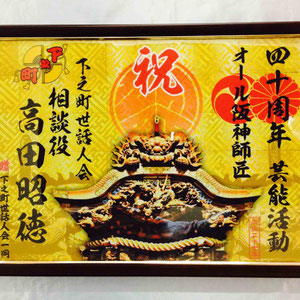 祝
四十周年 芸能活動
オール阪神師匠
下之町世話人会
相談役
高田昭徳
贈 下之町世話人会一同
下之町